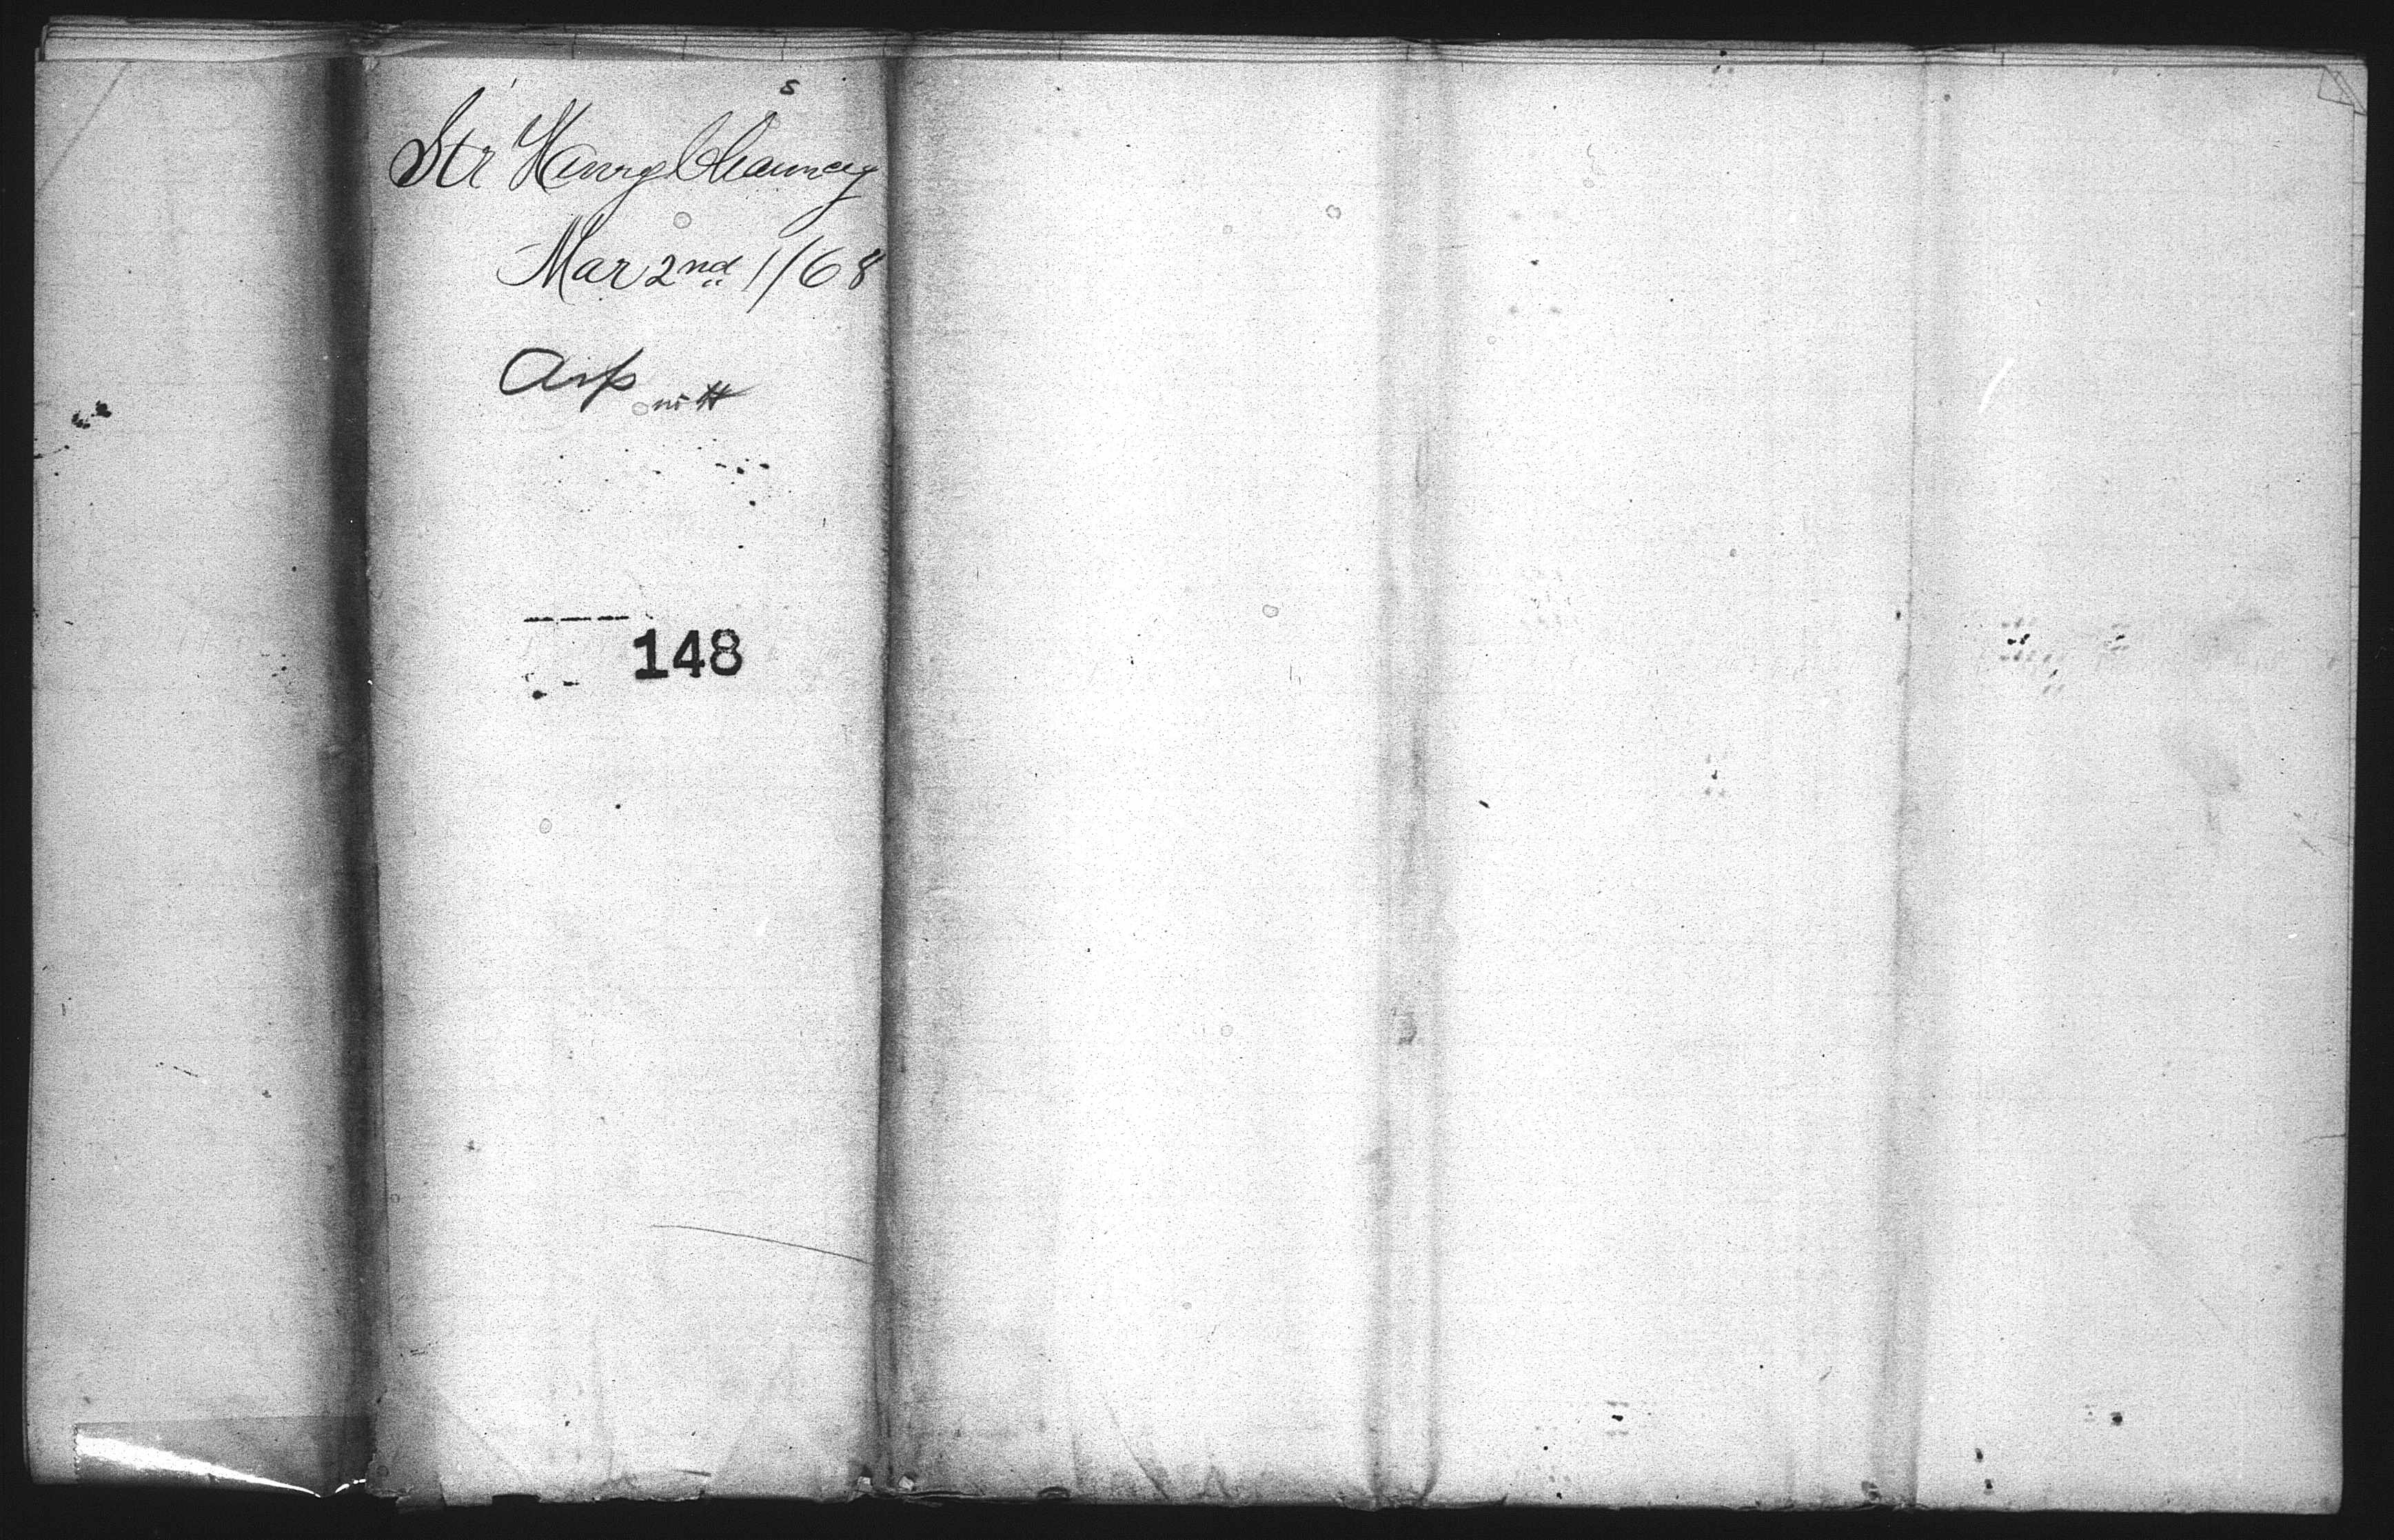 8
Str Henry Chauncey
Mar 2nd 1/68
Asp
148